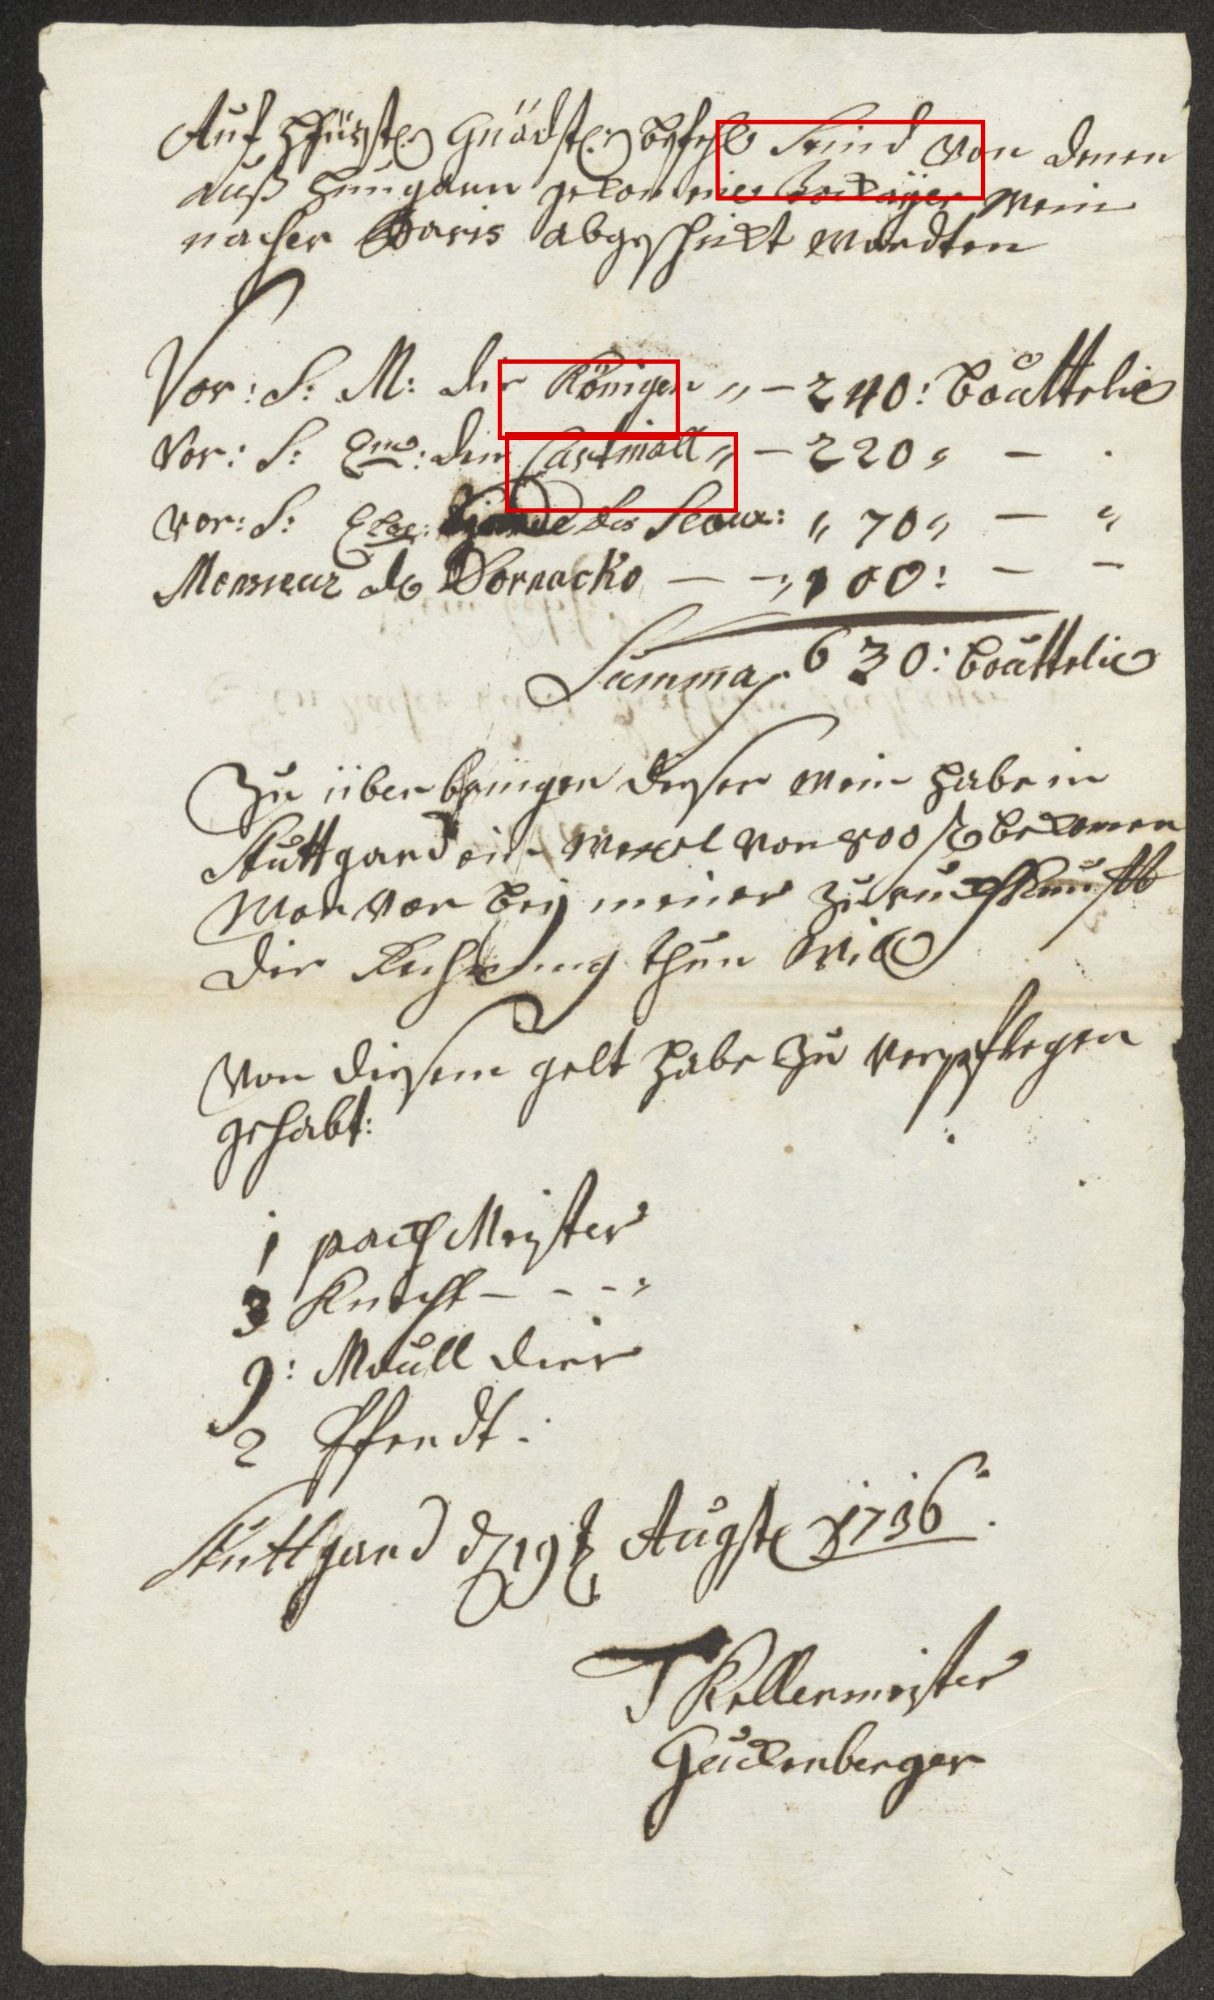 Auf Hfürstl: Gnädstl: befehl Seind von denen
auß Hungarn gekomene Tockayer Wein
nacher Paris abgeschickt wordten
Vor: S: M: der Königen " – 240: bouttelie
Vor: S: Em: den Cardinall " – 220 " – .
vor: S: Exce: des Seaux: " 70 " – "
Monsieur de Bornacko – – " 100: – –
Summa 630: bouttelie
Zu überbringen dieser Wein habe in
Stuttgard ein Wexel von 800 f bekomen
Wor vor bey meiner zuruckkunfft
die Rechnung thun Will
Von diesem gelt habe zu verpflegen
gehabt:
1 pack Meister
3 Knecht – – – "
9: Maull dier
2 Pferdt.
Stuttgard d 19t Augst 1736.
Kellermeister
Geickenberger